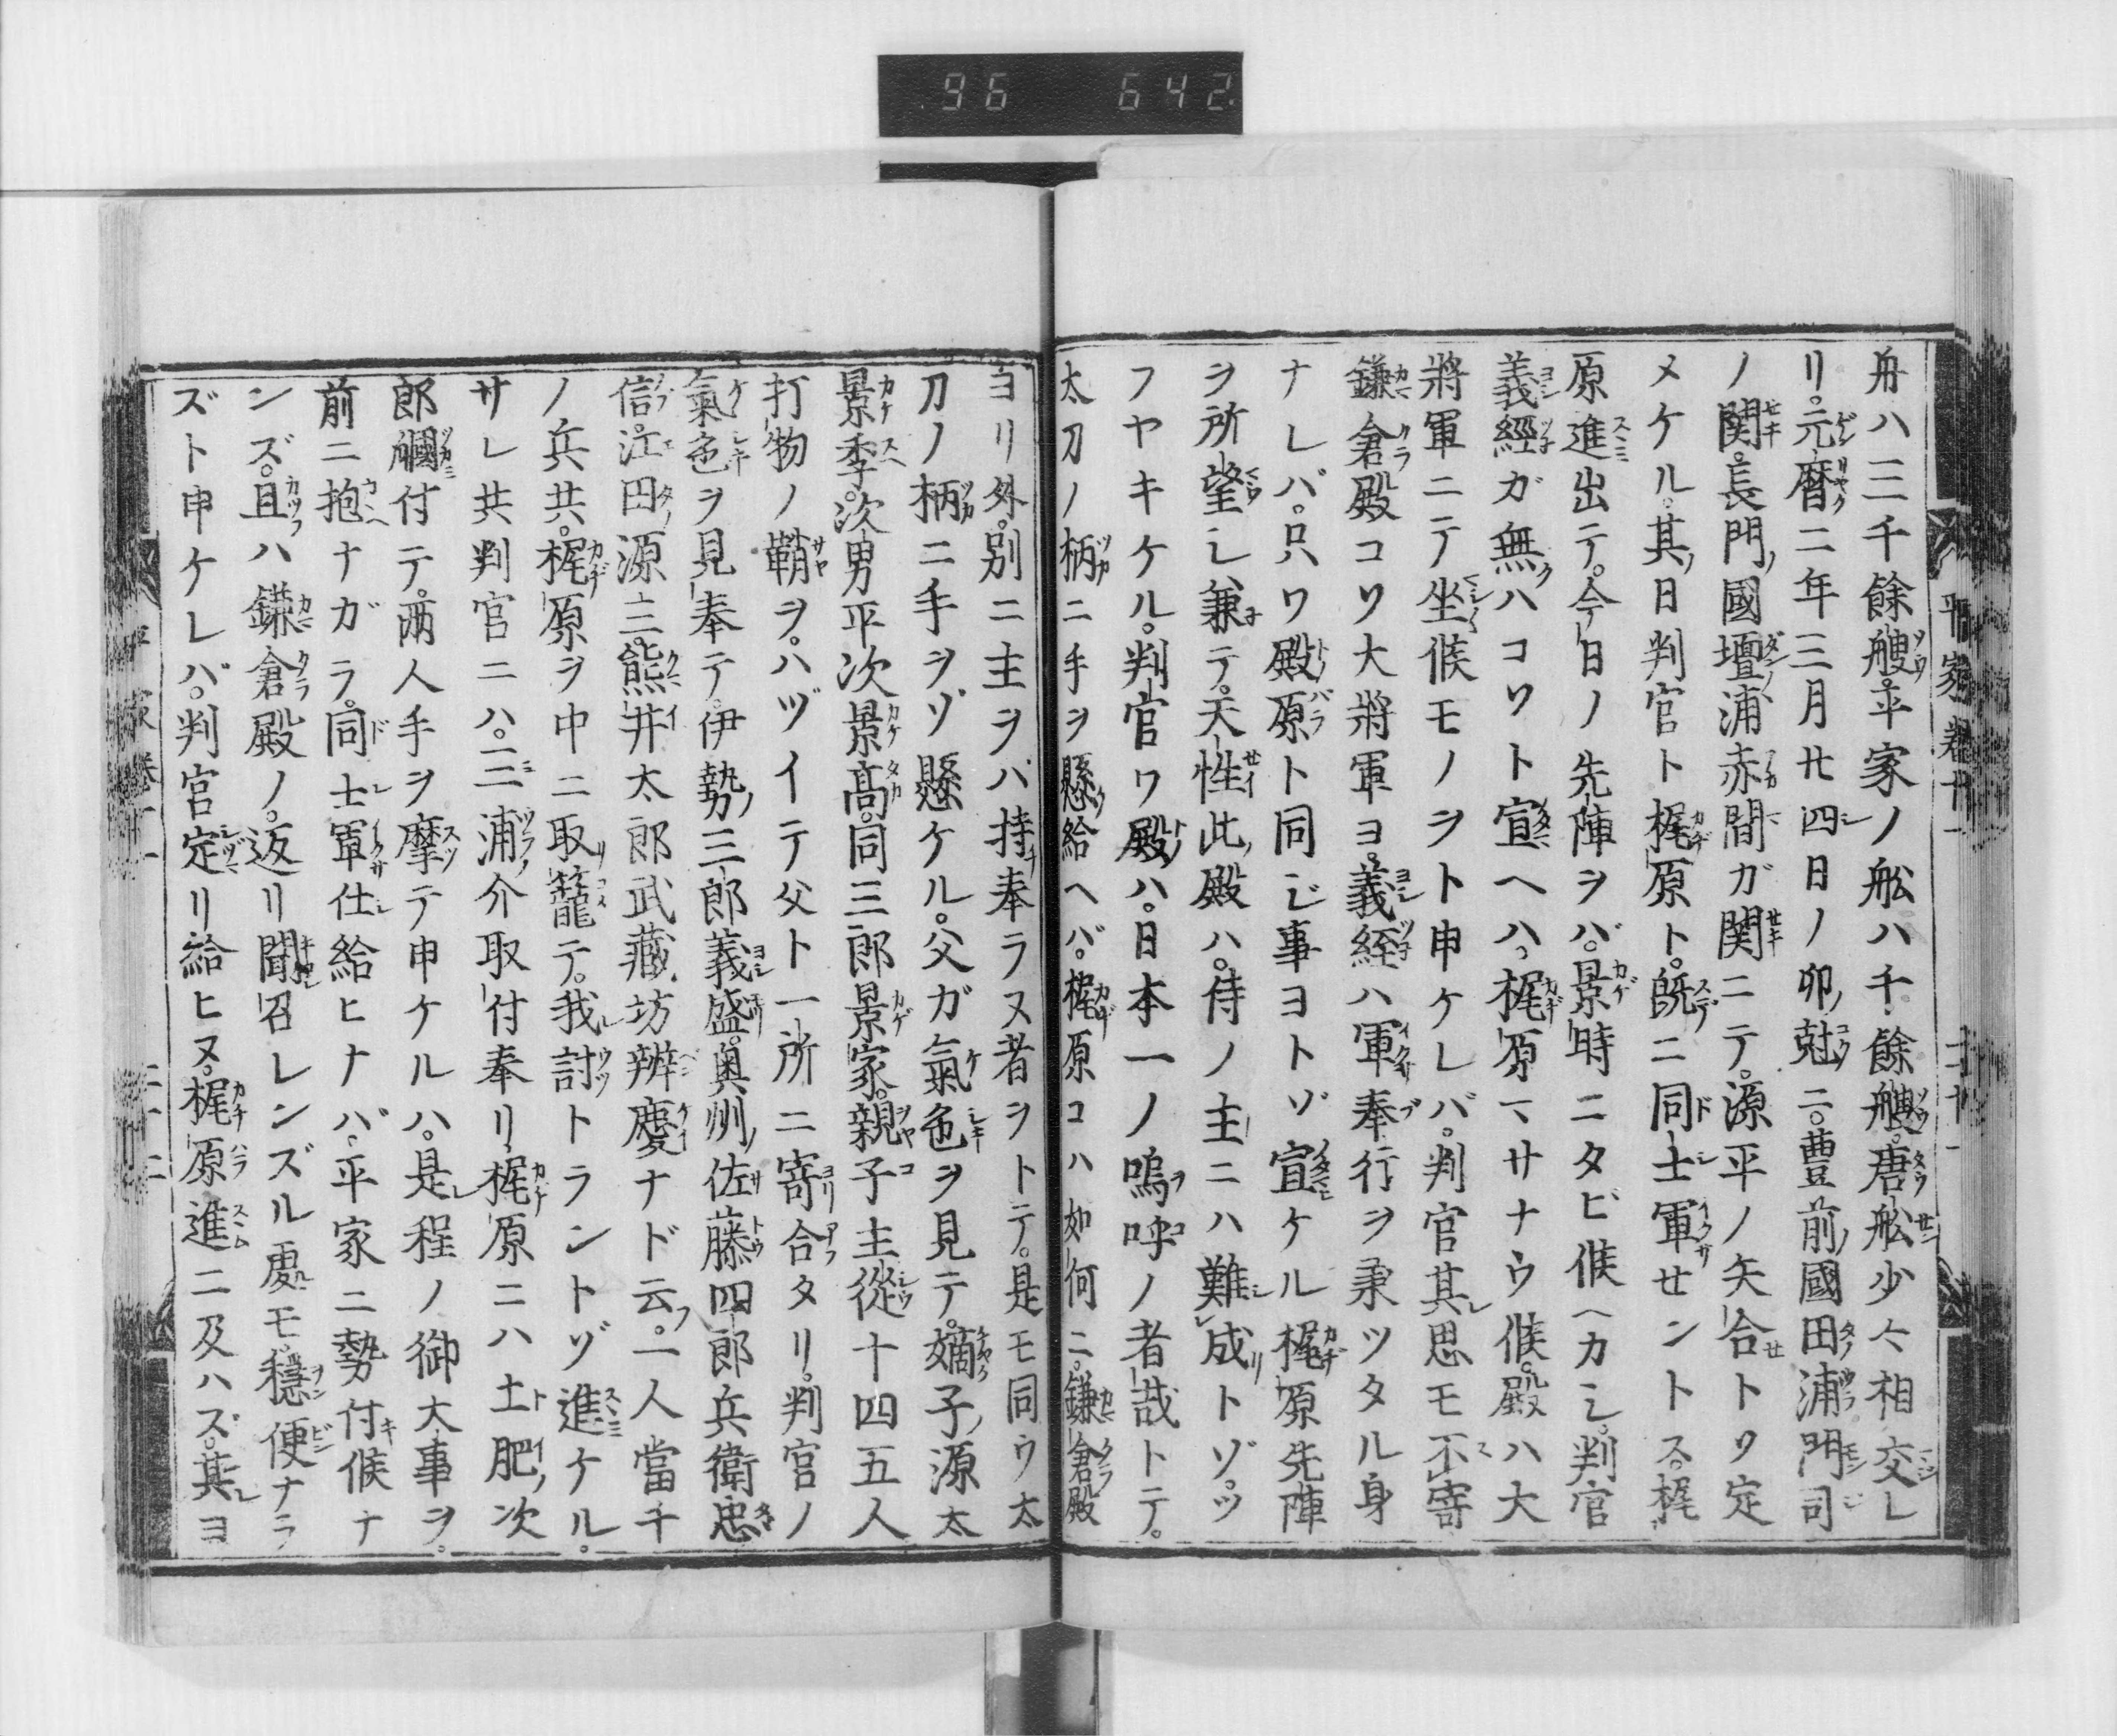 96 642
平家巻十一
舟ハ三千餘艘。平家ノ舩ハ千餘艘。唐舩少々相交レ
リ。元暦二年三月廿四日ノ卯尅ニ。豊前國田浦門司
ノ関。長門國壇浦赤間ガ関ニテ。源平ノ矢合トワ定
メケル。其日判官ト梶原ト。既ニ同士軍セントス。梶
原進出テ。今日ノ先陣ヲバ。景時ニタビ候ヘカシ。判官
義經ガ無ハコワト宣ヘハ。梶原マサナウ候。殿ハ大
將軍ニテ坐候モノヲト申ケレバ。判官其思モ不寄
鎌倉殿コワ大將軍ヨ。義經ハ軍奉行ヲ承ツタル身
ナレバ。只ワ殿原ト同じ事ヨトゾ宣ケル梶原先陣
ヲ所望シ兼テ。天性此殿ハ。侍ノ主ニハ難成トゾ。ツ
フヤキケル。判官ワ殿ハ。日本一ノ嗚呼ノ者哉トテ。
太刀ノ柄ニ手ヲ懸給ヘバ。梶原コハ如何ニ。鎌倉殿
ヨリ外。別ニ主ヲバ持奉ラヌ者ヲトテ。是モ同ウ太
刀ノ柄ニ手ヲゾ懸ケル。父ガ氣色ヲ見テ。嫡子源太
景季。次男平次景高。同三郎景家。親子主從十四五人
打物ノ鞘ヲ。ハヅイテ父ト一所ニ寄合タリ。判官ノ
氣色ヲ見奉テ。伊勢三郎義盛。奥州佐藤四郎兵衛忠
信。江田源三。熊井太郎武藏坊辨慶ナド云。一人當千
ノ兵共。梶原ヲ中ニ取籠テ。我討トラントゾ進ケル。
サレ共判官ニハ。三浦介取付奉リ。梶原ニハ土肥次
郎攫付テ。両人手ヲ摩テ申ケルハ。是程ノ御大事ヲ。
前ニ抱ナガラ。同士軍仕給ヒナバ。平家ニ勢付候ナ
ンズ。且ハ鎌倉殿ノ。返リ聞召レンズル處モ。穏便ナラ
ズト申ケレバ。判官定リ給ヒヌ。梶原進ニ及ハズ。其ヨ
平家巻十一
二十二